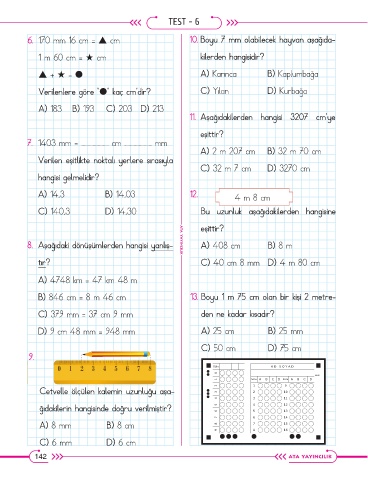 TEST - 6
6. 170 mm 16 cm = ▲ cm
1 m 60 cm = ★ cm
▲ + ★ = ●
Verilenlere göre "●" kaç cm'dir?
A) 183 B) 193 C) 203 D) 213
7. 1403 mm = ........... cm ........... mm
Verilen eşitlikte noktalı yerlere sırasıyla
hangisi gelmelidir?
A) 14,3 B) 14,03
C) 140,3 D) 14,30
8. Aşağıdaki dönüşümlerden hangisi yanlış-
tır?
A) 4748 km = 47 km 48 m
B) 846 cm = 8 m 46 cm
C) 379 mm = 37 cm 9 mm
D) 9 cm 48 mm = 948 mm
9.
0 1 2 3 4 5 6 7 8
Cetvelle ölçülen kalemin uzunluğu aşa-
ğıdakilerin hangisinde doğru verilmiştir?
A) 8 mm B) 8 cm
C) 6 mm D) 6 cm
10. Boyu 7 mm olabilecek hayvan aşağıda-
kilerden hangisidir?
A) Karınca B) Kaplumbağa
C) Yılan D) Kurbağa
11. Aşağıdakilerden hangisi 3207 cm'ye
eşittir?
A) 2 m 207 cm B) 32 m 70 cm
C) 32 m 7 cm D) 3270 cm
12.
4 m 8 cm
Bu uzunluk aşağıdakilerden hangisine
eşittir?
A) 408 cm B) 8 m
C) 40 cm 8 mm D) 4 m 80 cm
13. Boyu 1 m 75 cm olan bir kişi 2 metre-
den ne kadar kısadır?
A) 25 cm B) 25 mm
C) 50 cm D) 75 cm
142
ATA YAYINCILIK